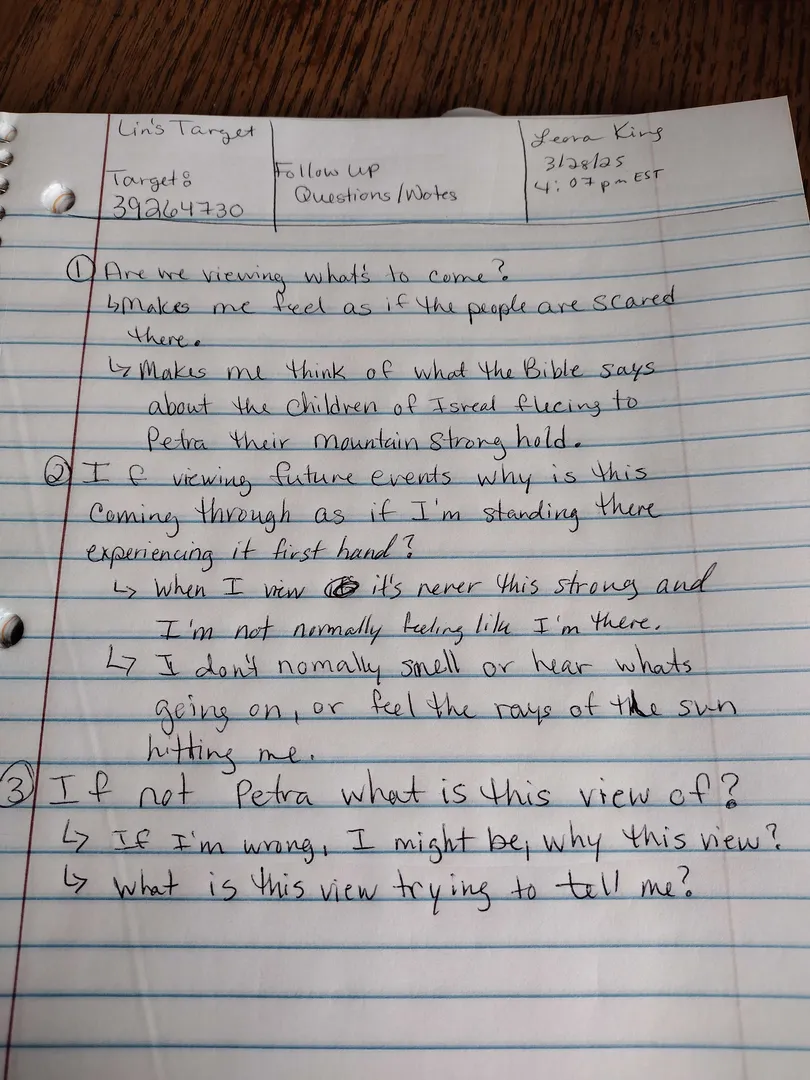 Lin's Target
Target:
39264730
Follow up
Questions/Notes
Leora King
3/28/25
4:07pm EST
① Are we viewing what's to come?
↳ Makes me feel as if the people are scared
there.
↳ Makes me think of what the Bible says
about the children of Isreal flueing to
Petra their mountain strong hold.
② If viewing future events why is this
Coming through as if I'm standing there
experiencing it first hand?
↳ When I view it's never this strong and
I'm not normally feeling like I'm there.
↳ I don't nomally smell or hear whats
going on, or feel the rays of the sun
hitting me.
③ If not Petra what is this view of?
↳ If I'm wrong, I might be, why this view?
↳ What is this view trying to tell me?